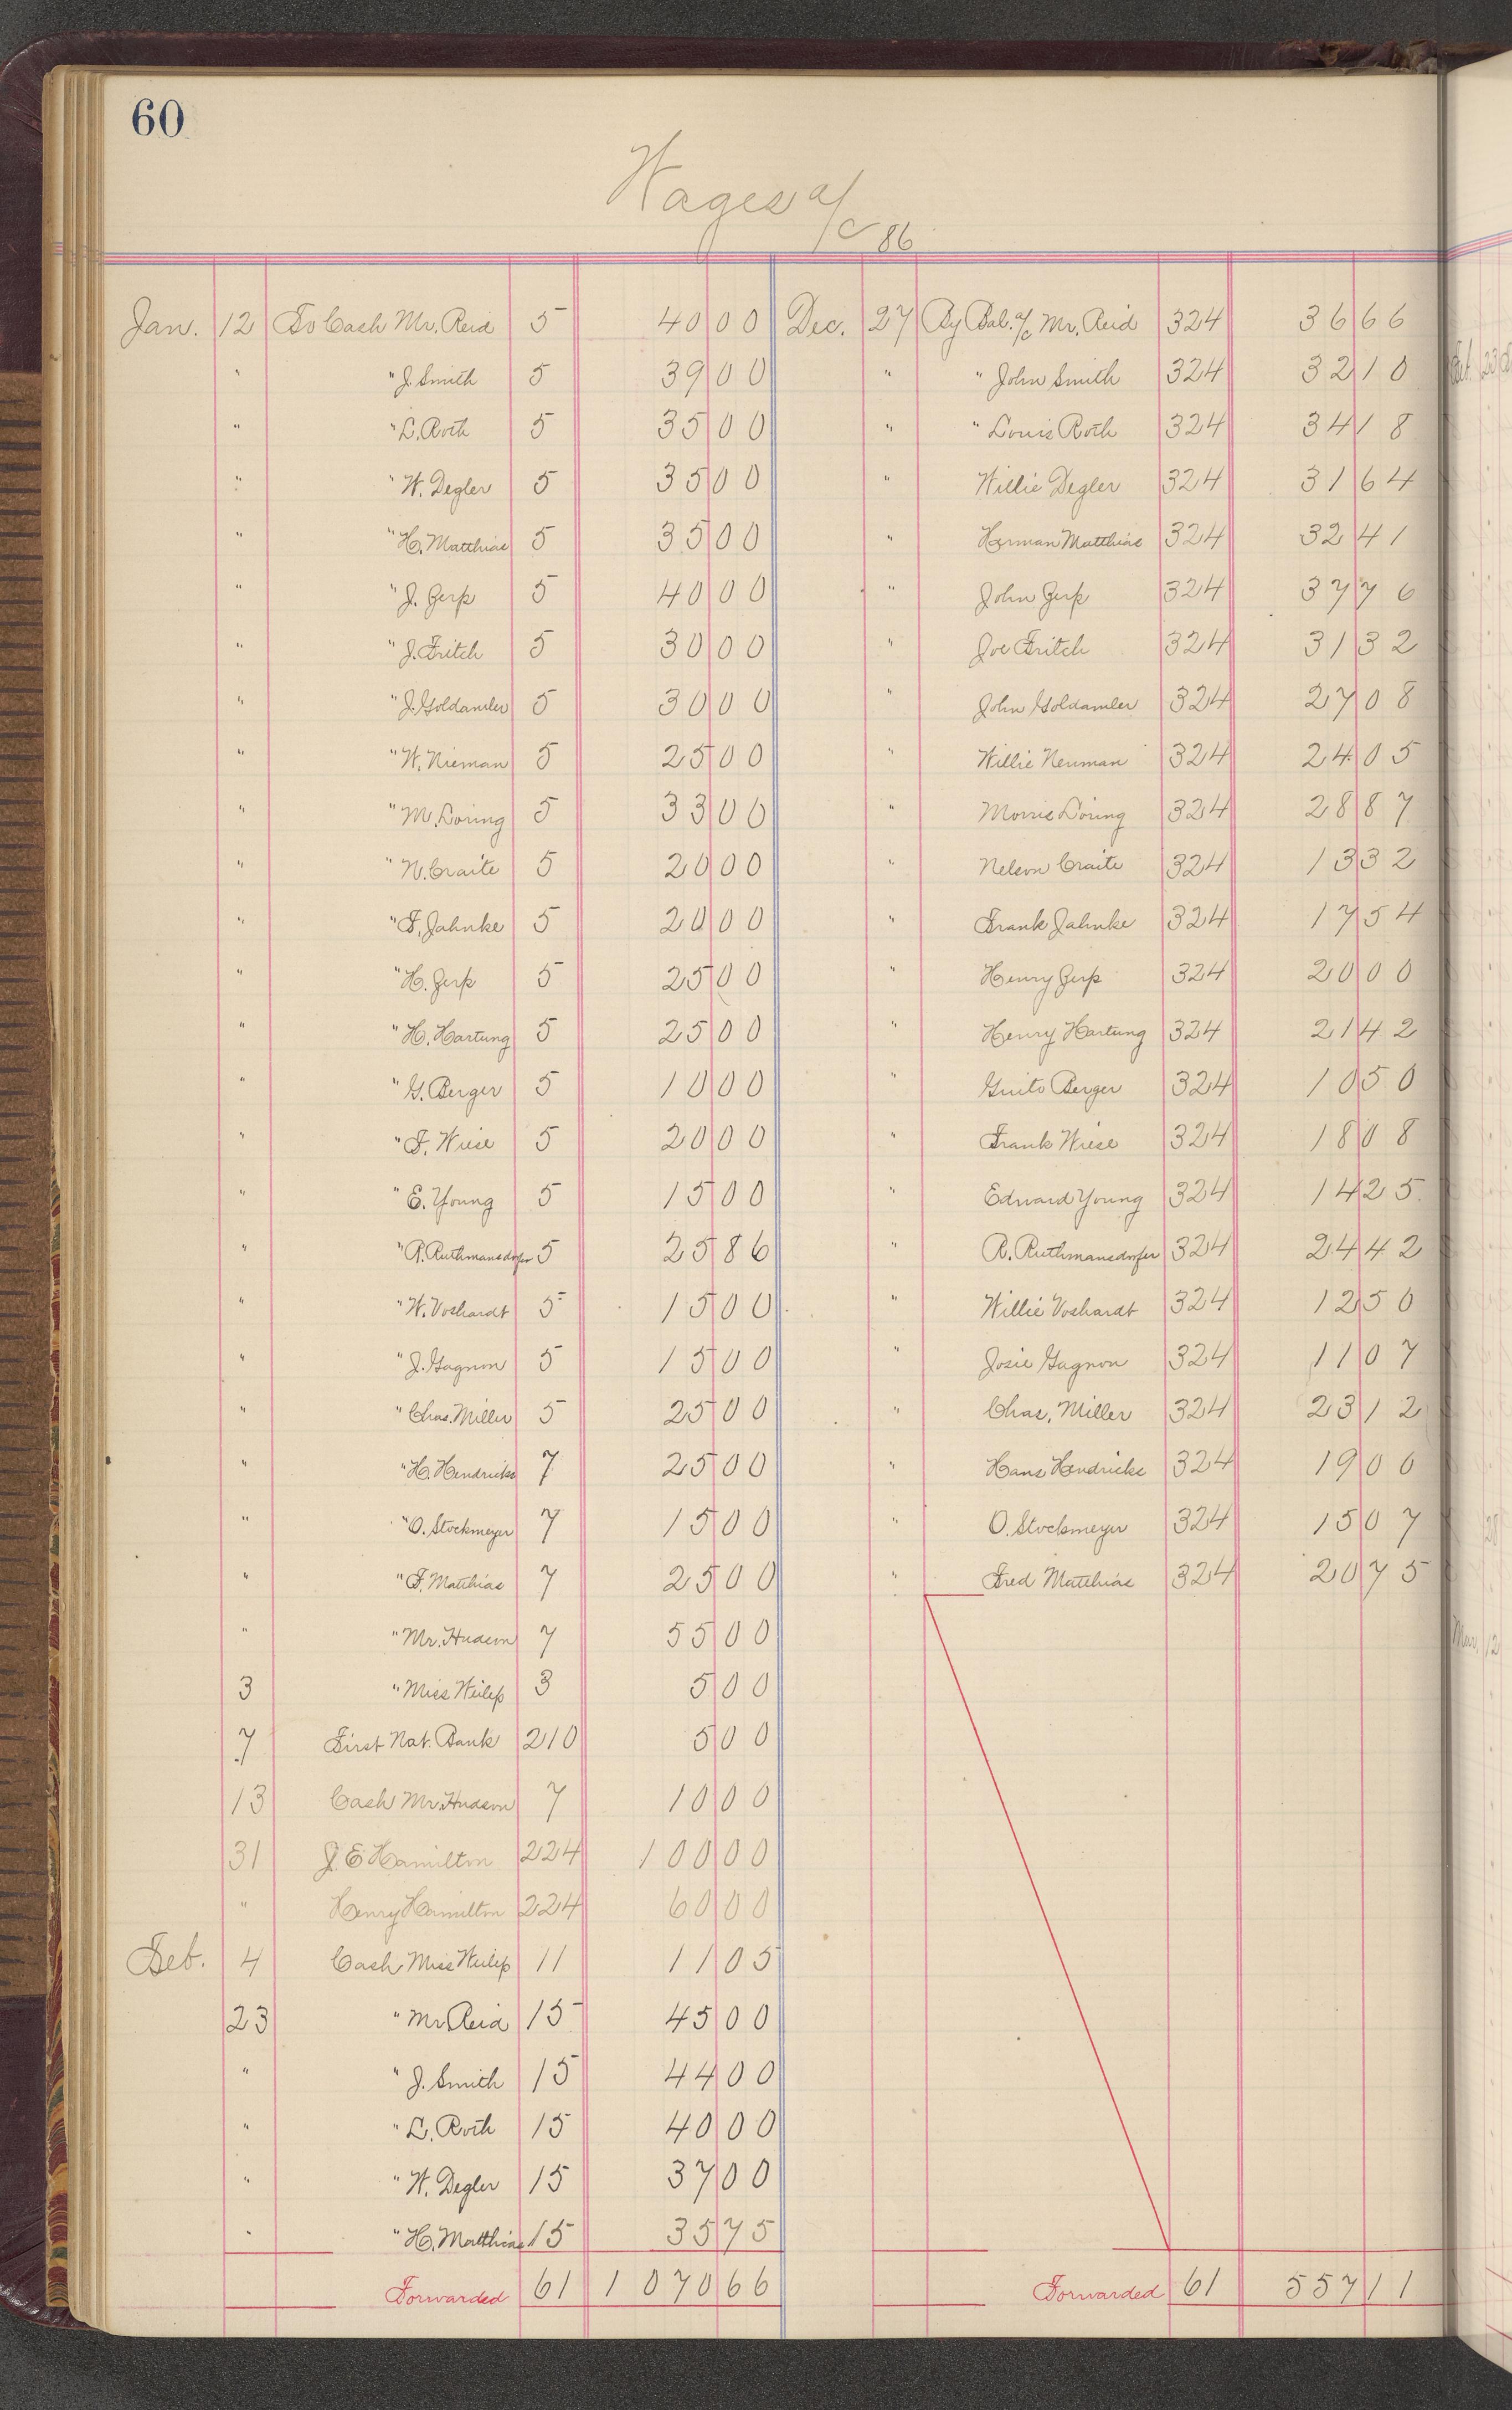 60
Wages a/c 86
Jan. 12 To Cash Mr. Reid 5 40 00 Dec. 27 By Bal. a/c Mr. Reid 324 36 66
" " J. Smith 5 39 00 " " John Smith 324 32 10
" " L. Roth 5 35 00 " " Louis Roth 324 34 18
" " W. Degler 5 35 00 " Willie Degler 324 31 64
" " H. Matthias 5 35 00 " Herman Matthias 324 32 41
" " J. Gerp 5 40 00 " John Gerp 324 37 76
" " J. Fritch 5 30 00 " Joe Fritch 324 31 32
" " J. Goldamler 5 30 00 " John Goldamler 324 27 08
" " W. Nieman 5 25 00 " Willie Neuman 324 24 05
" " M. Döring 5 33 00 " Morris Döring 324 28 87
" " N. Craite 5 20 00 " Nelson Craite 324 13 32
" " F. Jahnke 5 20 00 " Frank Jahnke 324 17 54
" " H. Gerp 5 25 00 " Henry Gerp 324 20 00
" " H. Hartung 5 25 00 " Henry Hartung 324 21 42
" " G. Berger 5 10 00 " Guito Berger 324 10 50
" " F. Wiese 5 20 00 " Frank Wiese 324 18 08
" " E. Young 5 15 00 " Edward Young 324 14 25
" " R. Ruthmansdorfer 5 25 86 " R. Ruthmansdorfer 324 24 42
" " W. Voshardt 5 15 00 " Willie Voshardt 324 12 50
" " J. Gagnon 5 15 00 " Josie Gagnon 324 11 07
" " Chas. Miller 5 25 00 " Chas. Miller 324 23 12
" " H. Hendricks 7 25 00 " Hans Hendricks 324 19 00
" " O. Stockmeyer 7 15 00 " O. Stockmeyer 324 15 07
" " F. Matthias 7 25 00 " Fred Matthias 324 20 75
" " Mr. Hudson 7 55 00
3 " Miss Weilep 3 5 00
7 First Nat. Bank 210 5 00
13 Cash Mr. Hudson 7 10 00
31 J. E Hamilton 224 100 00
" Henry Hamilton 224 60 00
Feb. 4 Cash Miss Weilep 11 11 05
23 " Mr Reid 15 45 00
" " J. Smith 15 44 00
" " L. Roth 15 40 00
" " W. Degler 15 37 00
" " H. Matthias 15 35 75
Forwarded 61 1 070 66 Forwarded 61 557 11